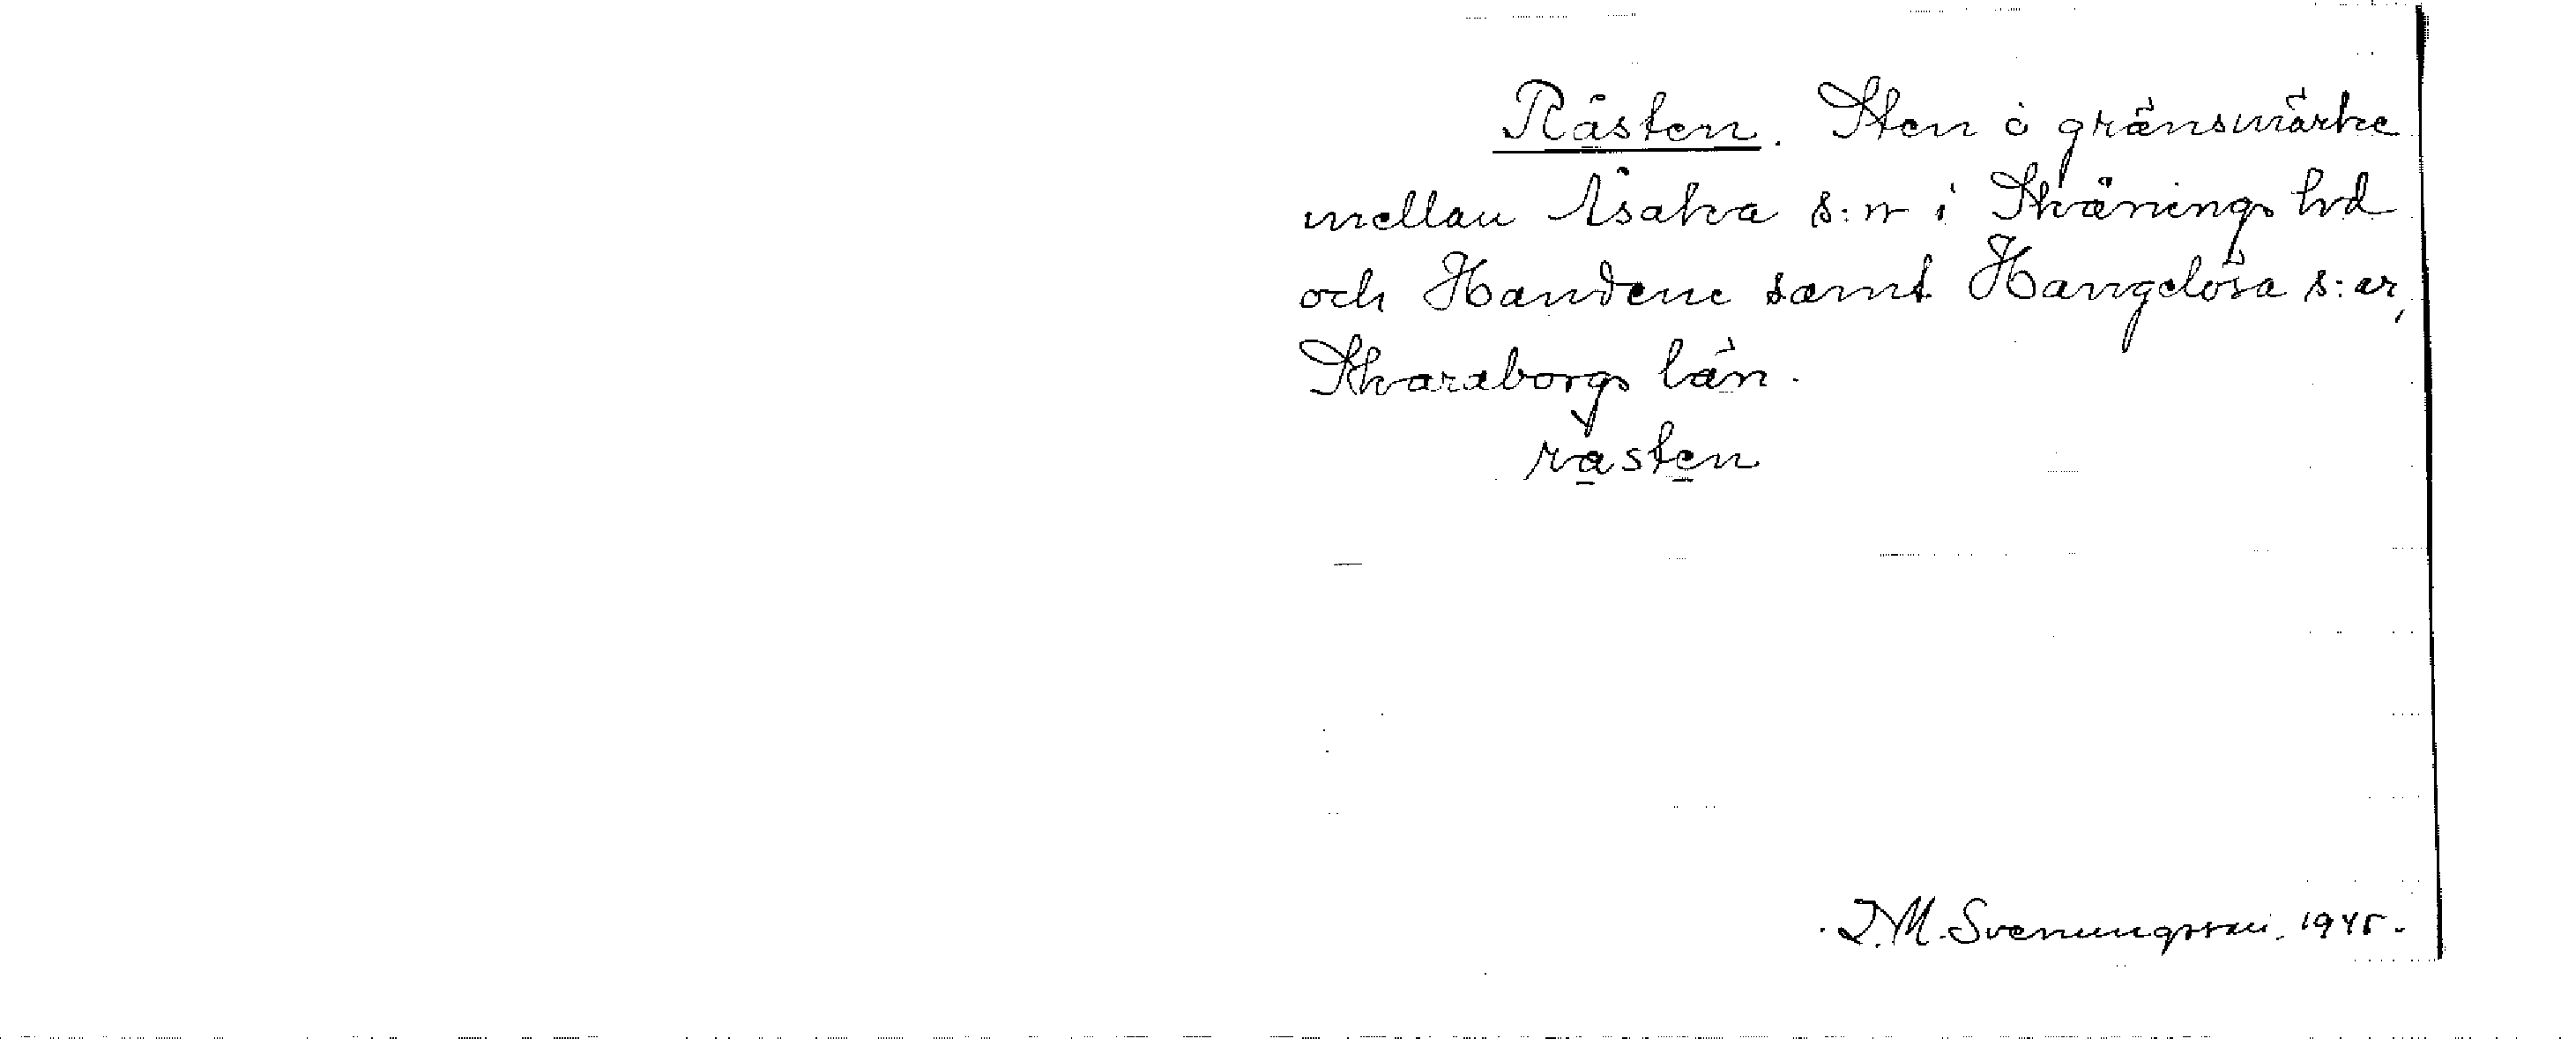 Råsten. Sten å gränsmärke
mellan Åsaka s:n i Skånings hd
och Händene samt Hangelösa s:ar,
Skaraborgs län.
råsten
D.M. Svenungsson. 1945.